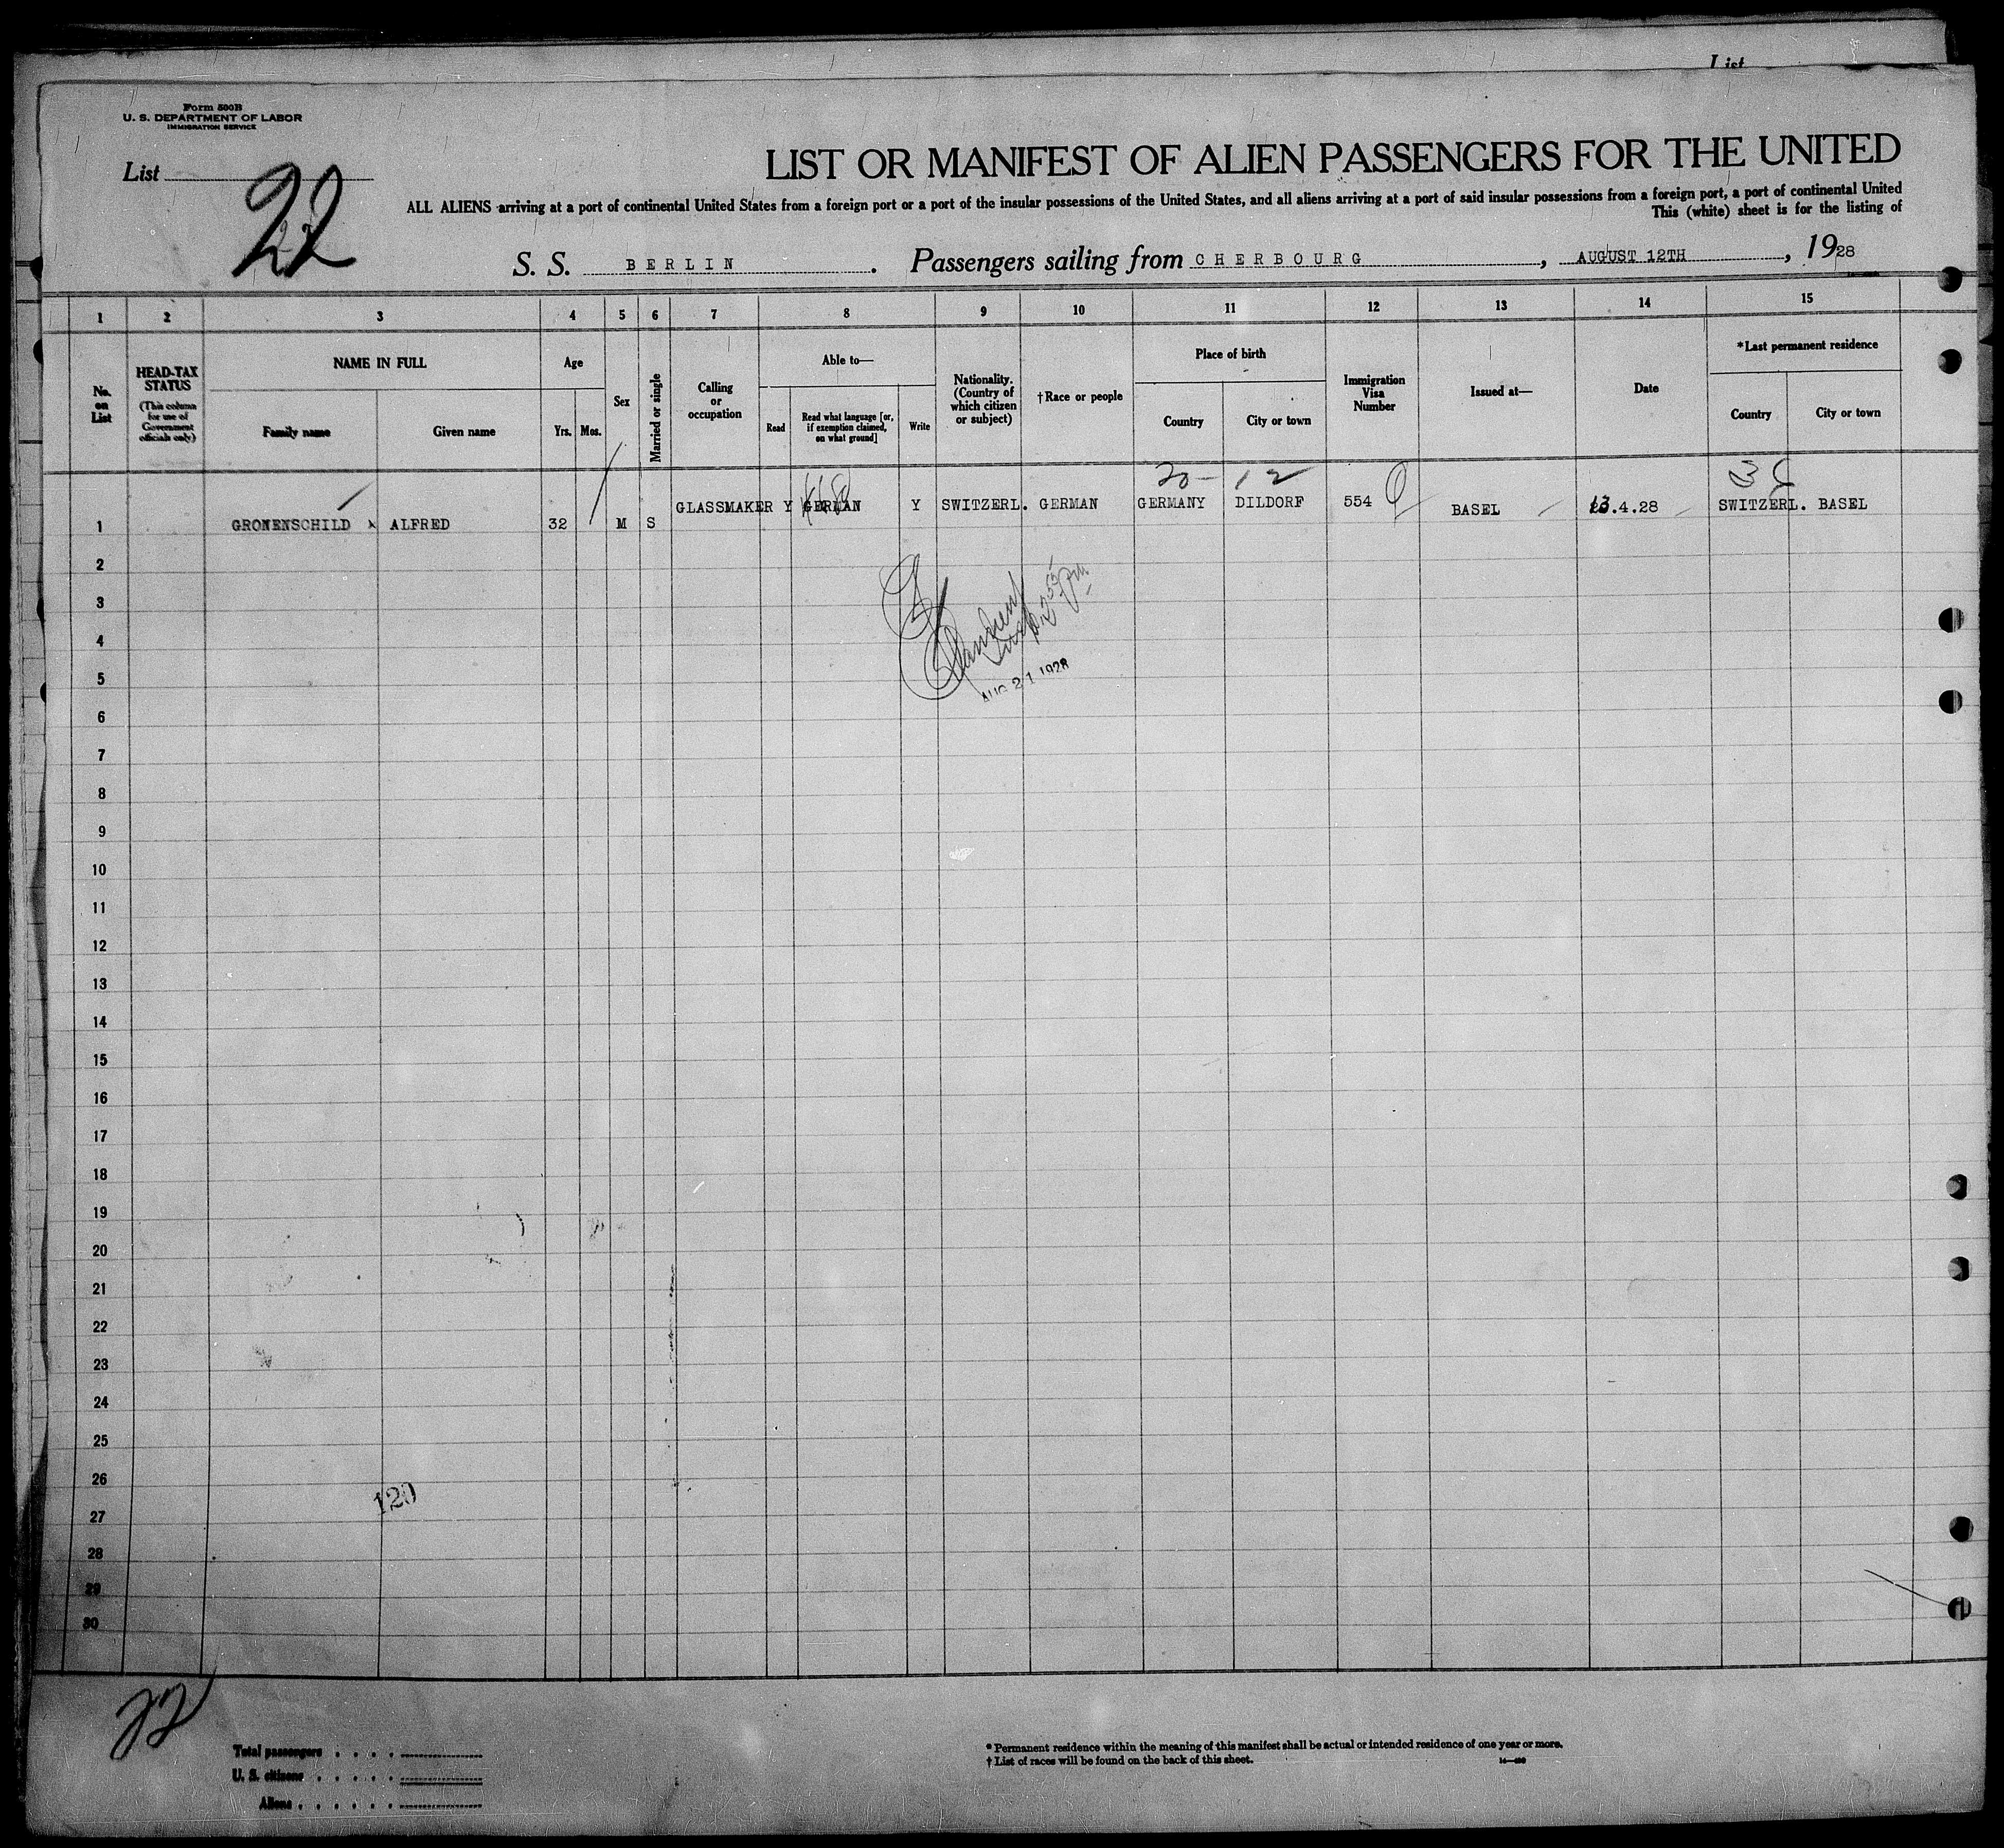 List
Form 500B
U. S. DEPARTMENT OF LABOR
IMMIGRATION SERVICE
List
22
LIST OR MANIFEST OF ALIEN PASSENGERS FOR THE UNITED
ALL ALIENS arriving at a port of continental United States from a foreign port or a port of the insular possessions of the United States, and all aliens arriving at a port of said insular possessions from a foreign port, a port of continental United
This (white) sheet is for the listing of
S. S. BERLIN. Passengers sailing from CHERBOURG, AUGUST 12TH, 1928
1 2 3 4 5 6 7 8 9 10 11 12 13 14 15
No. on List
HEAD-TAX STATUS
(This column for use of Government officials only)
NAME IN FULL
Family name
Given name
Age
Yrs.
Mos.
Sex
Married or single
Calling or occupation
Able to—
Read
Read what language [or, if exemption claimed, on what ground]
Write
Nationality. (Country of which citizen or subject)
†Race or people
Place of birth
Country
City or town
Immigration Visa Number
Issued at—
Date
*Last permanent residence
Country
City or town
20- 12
1 GRONENSCHILD x ALFRED 32 M S GLASSMAKER Y GERMAN Y SWITZERL. GERMAN GERMANY DILDORF 554 BASEL 13.4.28 SWITZERL. BASEL
2
3
4
5
AUG 21 1928
6
7
8
9
10
11
12
13
14
15
16
17
18
19
20
21
22
23
24
25
26
120
27
28
29
30
22
Total passengers
U. S. citizens
Aliens
* Permanent residence within the meaning of this manifest shall be actual or intended residence of one year or more.
† List of races will be found on the back of this sheet.